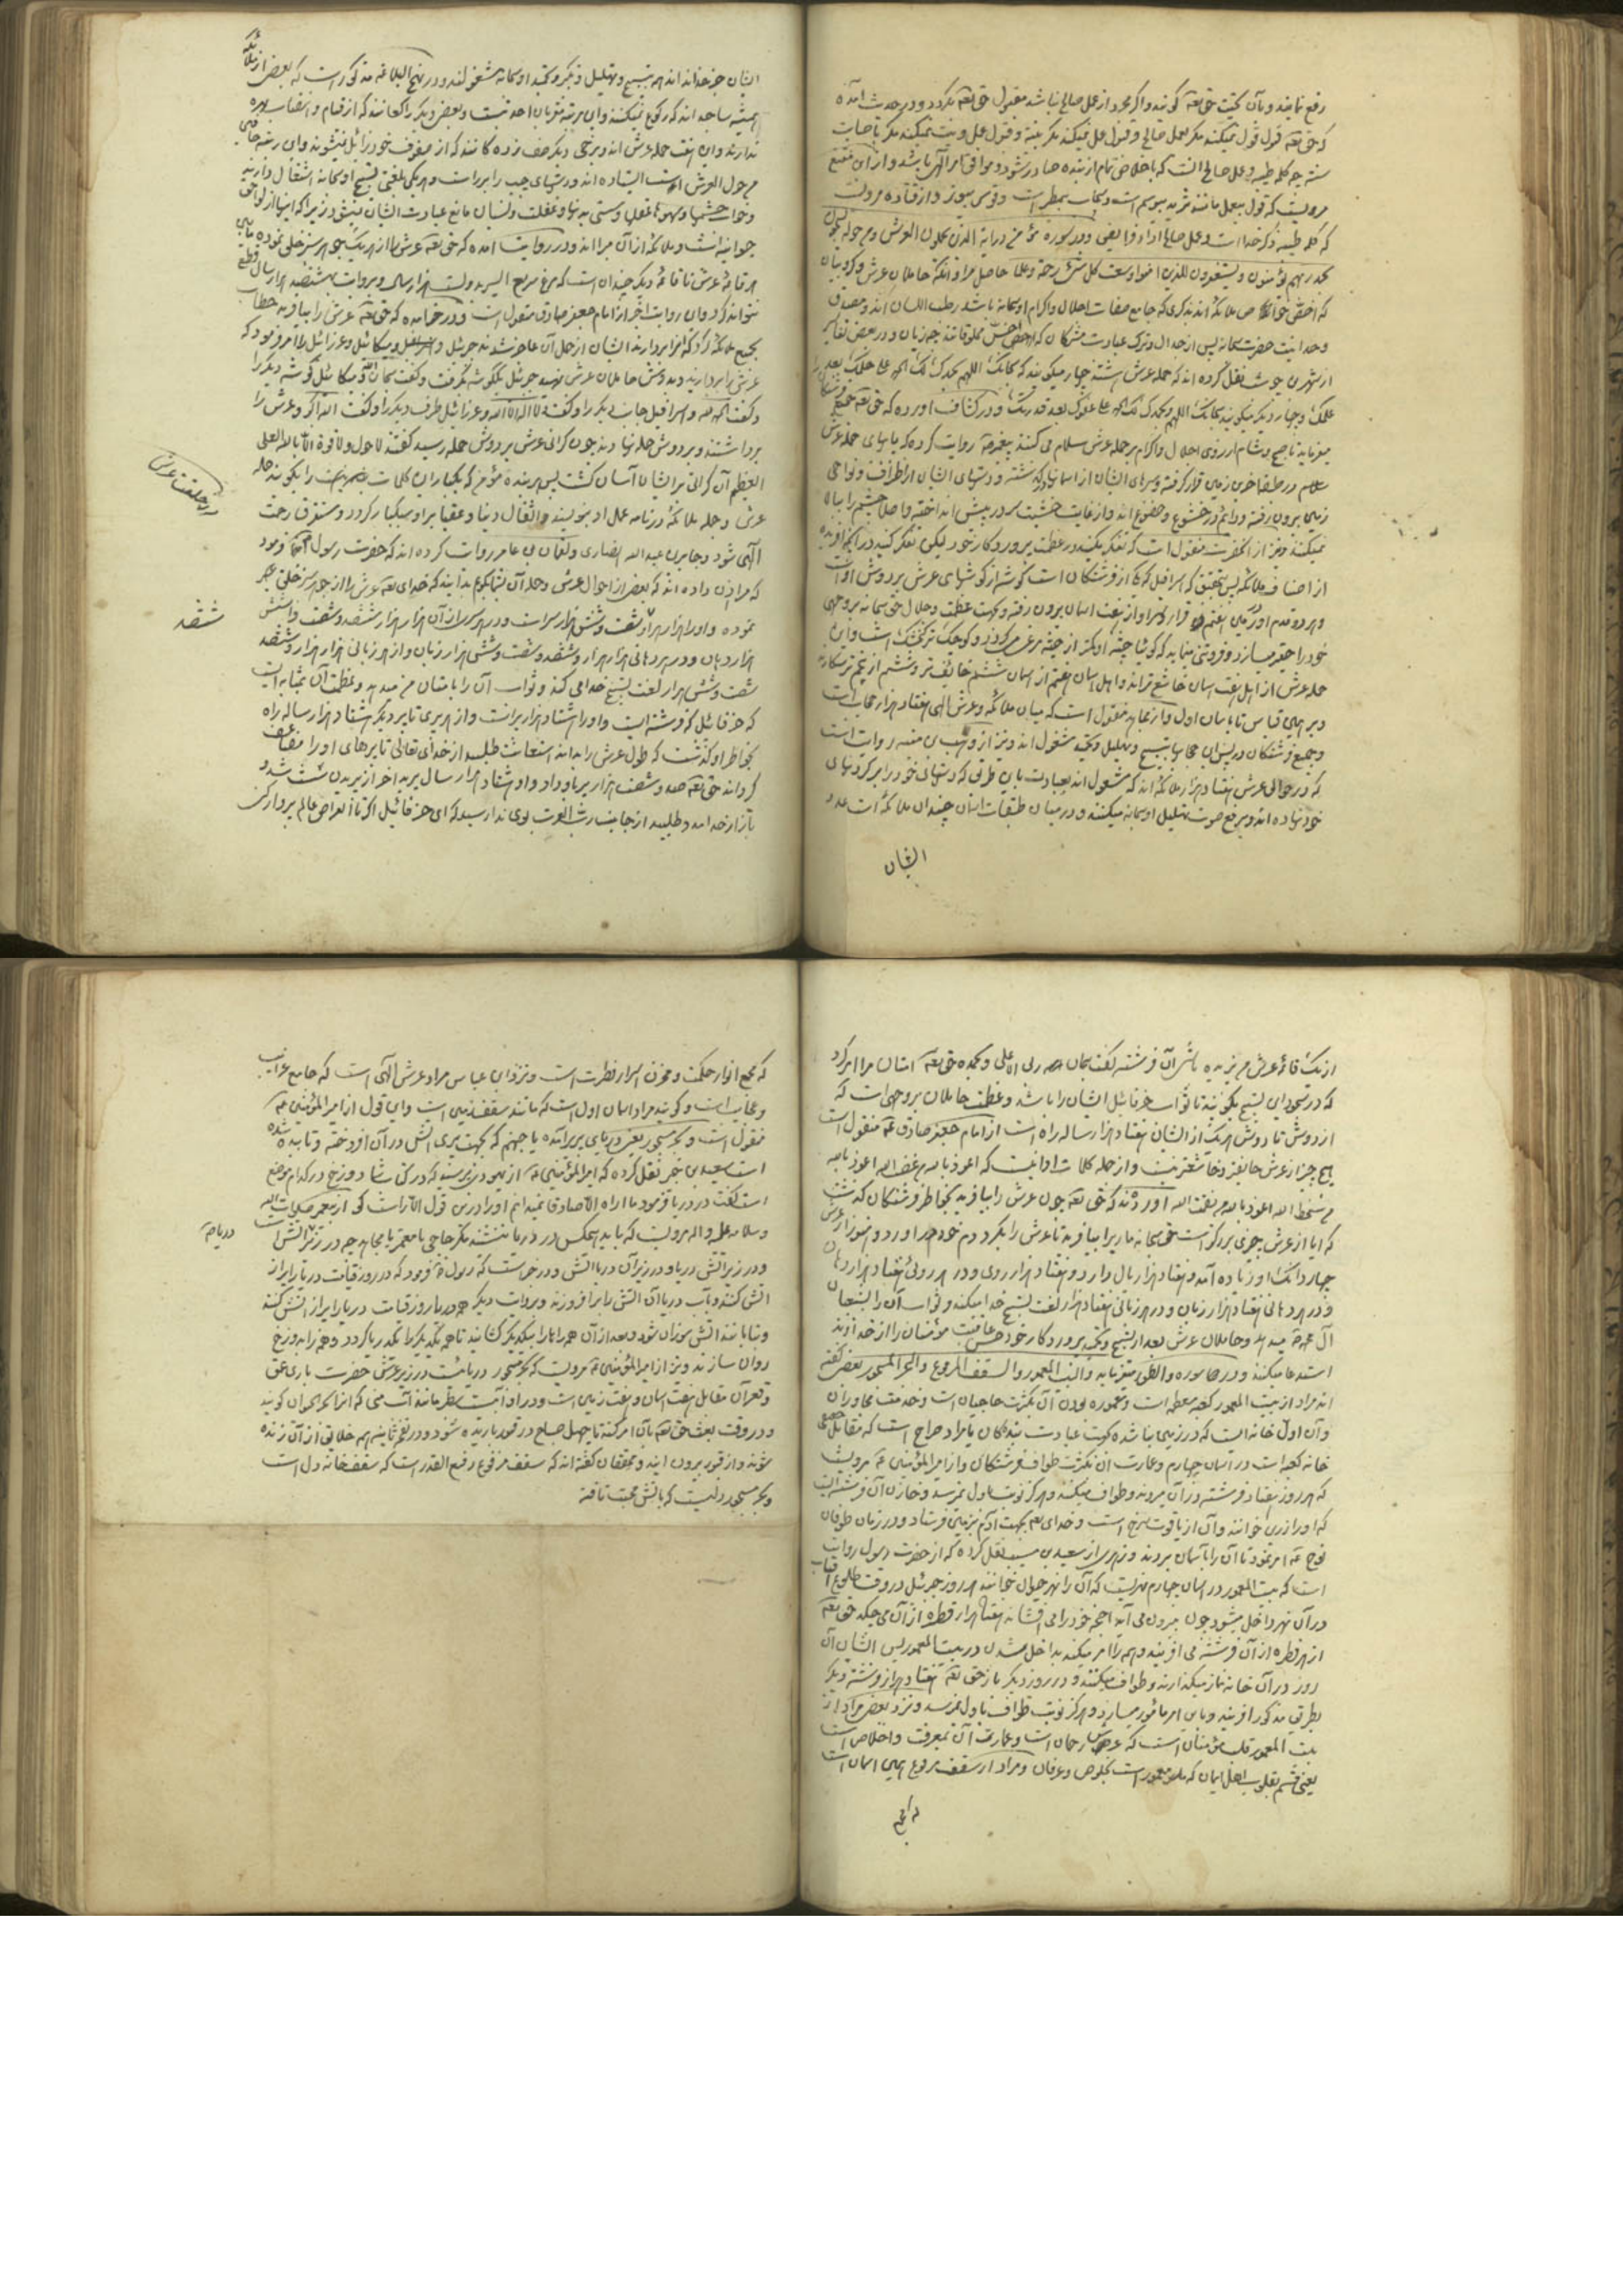 رفع نمایند و بآن کیت حق تعه کویند و اکر مجرد از عمل صالح نباشد مقبول حق تعه نکردد و در حدیث آمده
که حق تعه قول قبول نمیکند مکر بعمل صالح و قبول عمل نمیکند مکر بنیة و قبول عمل و نیت نمیکند مکر باصابت
سنة چه کلمه طیبه و عمل صالح آنست که باخلاص تمام از بنده صادر شود و موافق امر الهی باشد و از ابن مقنع
مرویست که قول بیعمل مانند ثرید بیدسم است و سحاب بیمطر است و قوس بیوتر و از قتاده مرویست
که کلمه طیبه ذکر خدا است و عمل صالح اداء فرایض و در سوره مؤمن در آیة الذین یحملون العرش و من حوله یسبحون
بحمد ربهم و یؤمنون به و یستغفرون للذین امنوا وسعت کل شیء رحمة و علما حاصل مراد آنکه حاملان عرش و کروبیان
که اخص خواص ملائکه اند بذکری که جامع صفات اجلال و اکرام اوسبحانه باشد رطب اللسان اند و مصدق
وحدانیت حضرت سبحانه پس از جدال و ترک عبادت مشرکان که اخس مخلوقاتند چه زیان و در بعض تفاسیر
از شهر بن حوشب نقل کرده اند که حمله عرش هشتند چهار میکویند که سبحانک اللهم بحمدک لک الحمد علی حلمک بعد
علمک و چهار دیگر میکویند سبحانک اللهم و بحمدک لک الحمد علی عفوک بعد قدرتک و در کشاف آورده که حق تعه جمیع فرشتکان را
میفرماید تا صبح و شام از روی اجلال و اکرام بر حمله عرش سلام می کنند پیغمبر روایت کرده که پایهای حمله عرش
علام در طبقه آخرین زمین قرار کرفته و سرهای ایشان از آسمانها در کذشته و دستهای ایشان از اطراف و نواحی
زمین بیرون رفته و دائم در خشوع و خضوع اند و از غایت خشیت سر در پیش انداخته و اصلا چشم را بالا
نمیکنند و نیز از آنحضرت منقول است که تفکر نکنید در عظمت پروردکار خود لیکن تفکر کنید در آنچه آفریده
از اصناف ملائکه پس بتحقیق که اسرافیل که یکی از فرشتکان است کوشه از کوشهای عرش بر دوش اوست
و هر دو قدم او در زمین هفتم قرار و سر او از هفت آسمان بیرون رفته و بجهت عظمت و جلال حق سبحانه بر وجهی
خود را حقیر میسازد و فروتنی مینماید که کوئیا جثه او کمتر از جثه مرغی میکردد و کوچک تر از کنجشک است و این
حمله عرش از اهل هفت آسمان خاشع تراند و اهل آسمان هفتم از آسمان ششم خائف تر و ششم از پنجم ترسکارتر
و بر همین قیاس تا بآسمان اول و از مجاهد منقول است که میان ملائکه و عرش الهی هفتاد هزار حجابست
و جمیع فرشتکان در پس این حجابها بتسبیح و تهلیل و تحمید مشغول اند و نیز از وهب بن منبه روایت است
که در حوالی عرش هفتاد هزار ملائکه اند که مشغول اند بعبادت باین طریق که دستهای خود را بر کردنهای
خود نهاده اند و برفع صوت تهلیل اوسبحانه میکنند و در میان طبقات آسمان چندان ملائکه است عدد
ایشان
ایشان جز خدا نداند همه بتسبیح و تهلیل و تکبیر و تحمید اوسبحانه مشغولند و در نهج البلاغه مذکور است که بعض از ملائکه
همیشه ساجدانند که رکوع نمیکنند و این مرتبه مقربان احدیتست و بعض دیکر راکعانند که از قیام و انتصاب بهره
ندارند و این هفت حمله عرش اند و برخی دیکر صف زده کانند که از صفوف خود زائل نمیشوند و این رتبه حافین
من حول العرش است ایستاده اند و دستهای چپ را بر راست و هر یکی بلغتی تسبیح اوسبحانه اشتغال دارند
و خواب چشمها و سهو عقلها و سستی بدنها و غفلت و نسیان مانع عبادت ایشان نمیشود زیرا که اینها از لواحق
حیوانیة است و ملائکه از آن مبرا اند و در روایت آمده که حق تعه عرش را از یک جوهر سبز خلق نموده مابین
هر قائمه عرش تا قائمه دیکر چندان است که مرغ سریع السیر بدویست هزار سال و بروایت هشتصد هزار سال قطع
نتواند کرد و این روایت آخر از امام جعفر صادق منقول است و در خبر آمده که حق تعه عرش را بیافرید خطاب
بجمیع ملائکه کرد که آنرا بردارند ایشان از حمل آن عاجز شدند جبرئیل و اسرافیل و میکائیل و عزرائیل را امر فرمود که
عرش را بردارند و بدوش حاملان عرش نهید جبرئیل یکگوشه بگرفت و گفت سبحان الله و میکائیل گوشه دیگر را
و گفت الحمد لله و اسرافیل جانب دیگر را و گفت لا اله الا الله و عزرائیل طرف دیگر را و گفت الله اکبر و عرش را
برداشتند و بر دوش حمله نهادند چون گرانی عرش بر دوش حمله رسید گفتند لا حول و لا قوة الا بالله العلی
العظیم آن گرانی بر ایشان آسان گشت پس هر بنده مؤمن که یکبار این کلمات را بگوید حمله
عرش و جمله ملائکه در نامه عمل او بنویسند و اثقال دنیا و عقبا بر او سبکبار گردد و مستغرق رحمت
الهی شود و جابر بن عبد الله انصاری و لقمان بن عامر روایت کرده اند که حضرت رسول فرمود
که مرا اذن داده اند که بعض از احوال عرش و حمله آن بشما بگویم بدانید که خدای تعه عرش را از جوهر سبز خلق
نموده و او را هزار هزار و شصت و شش هزار سر است و در هر سر از آن هزار هزار و ششصد و شصت و شش
هزار دهان و در هر دهانی هزار هزار و ششصد و شصت و شش هزار زبان و از هر زبانی هزار هزار و ششصد
شصت و شش هزار لغت تسبیح خدا می کند و ثواب آن را بامتان من میدهد و عظمت آن بمثابه ایست
که حزقائیل که فرشته ایست و او را هشتاد هزار پر است و از هر پری تا پر دیگر هشتاد هزار ساله راه
بخاطر او گذشت که طول عرش را بداند استعانت طلبید از خدای تعالی تا پرهای او را مضاعف
گرداند حق تعه صد و شصت هزار پر باو داد و او هشتاد هزار سال پرید آخر از پریدن سست شد و
باز از خدا مدد طلبید از جانب رب العزت بوی ندا رسید که ای حزقائیل اکر تا انقراض عالم پرواز کنی
در خلقت عرش
ششصد
از یک قائمه عرش در نگذری پس آن فرشته گفت سبحان ربی الاعلی و بحمده حق تعه امتان مرا امر کرد
که در سجود این تسبیح بگویند تا ثواب حزقائیل ایشان را باشد و عظمت حاملان بر وجهی است که
از دوش تا دوش هر یک از ایشان هفتاد هزار ساله راه است از امام جعفر صادق منقول است
هیچ چیز از عرش خائفتر و خاشعتر نیست و از جمله کلمات او اینست که اعوذ بالله من غضب الله اعوذ بالله
من سخط الله اعوذ بالله من نقمت الله آورده اند که حق تعه چون عرش را بیافرید بخاطر فرشتکان گذشت
که آیا از عرش چیزی بزرگتر است حق سبحانه ماری را بیافرید تا عرش را بگرد دم خود در آورد و هنوز از عرش
چهار دانگ او زیاده آمد و هفتاد هزار بال دارد و هفتاد هزار روی و در هر روئی هفتاد هزار دهان
و در هر دهانی هفتاد هزار زبان و در هر زبانی هفتاد هزار لغت تسبیح خدا میکند و ثواب آن را بشیعیان
آل محمد میدهد و حاملان عرش بعد از تسبیح و تحمید پروردکار خود حسن عاقبت مؤمنان را از خداوند
استدعا میکنند و در سوره و الطور میفرماید و البیت المعمور و السقف المرفوع و البحر المسجور بعض گفته
اند مراد از بیت المعمور کعبه معظمه است و معموره بودن آن بکثرت حاجیان است و خدمت مجاوران
و آن اول خانه ایست که در زمین بنا شده بجهت عبادت بندکان یا مراد ضراح است که مقابل
خانه کعبه است در آسمان چهارم و عمارت آن بکثرت طواف فرشتکان و از امیر المؤمنین مرویست
که هر روز هفتاد فرشته در آن میروند و طواف میکنند و هرکز نوبت باول نمیرسد و خازن آن فرشته ایست
که او را زرین خوانند و آن از یاقوت سرخ است و خدای تعه بجهت آدم بزمین فرستاد و در زمان طوفان
نوح امر نمود تا آن را بآسمان بردند و زهری از سعید بن مسیب نقل کرده که از حضرت رسول روایت
است که بیت المعمور در آسمان چهارم نهریست که آن را نهر حیوان خوانند هر روز جبرئیل در وقت طلوع آفتاب
در آن نهر داخل میشود چون بیرون می آید اجنحه خود را می افشاند هفتاد هزار قطره از آن می چکد حق تعه
از هر قطره از آن فرشته می آفریند و همه را امر میکند بداخل شدن در بیت المعمور پس ایشان آن
روز در آن خانه نماز میکذارند و طواف میکنند و در روز دیگر باز حق تعه هفتاد هزار فرشته دیگر
بطریق مذکور آفریند و باین امر مامور میسازد و هرکز نوبت طواف باول نمیرسد و نزد بعض مراد از
بیت المعمور قلب مؤمنان است که عرش رحمان است و عمارت آن بمعرفت و اخلاص است
یعنی قسم بقلوب اهل ایمان که معمور است بخلوص و عرفان و مراد از سقف مرفوع همین آسمان است
که مجمع
که مجمع انوار حکمت و مخزن اسرار فطرت است و نزد ابن عباس مراد عرش الهی است که جامع غرایب
و عجایب است و گویند مراد آسمان اول است که مانند سقف زمین است و این قول از امیر المؤمنین
منقول است و بحر مسجور یعنی دریای پر برآمده یا جهنم که بجهت پری آتش در آن افروخته و تابیده شده
است سعید بن جبیر نقل کرده که امیر المؤمنین از یهودی پرسید که در کتاب شما دوزخ در کدام موضع
است گفت در دریا فرمود ما اراه الا صادقا نمیدانم او را در این قول الا راست گو از پیغمبر صلوات الله
و سلامه علیه و اله مرویست که باید هیچکس در دریا ننشیند مکر حاجی یا معتمر یا مجاهد چه در زیر دریا آتش است
و در زیر آتش دریا و در زیر آن دریا آتش و در خبر است که رسول فرمود که در روز قیامت دریا را پر از
آتش کنند و بآب دریا آن آتش را بر افروزند و بروایت دیگر همه دریاها روز قیامت دریا را پر از آتش کنند
و بتابانند آتش سوزان شود و بعد از آن همه راه ها را بیکدیگر گشایند تا همه یکدیگر یک دریا گردد و همه را بدوزخ
روان سازند و نیز از امیر المؤمنین مرویست که بحر مسجور دریائیست در زیر عرش حضرت باری عمق
و قعر آن مقابل هفت آسمان و هفت زمین است و در او آبیست غلیظ مانند آب منی که آنرا بحر الحیوان گویند
و در وقت بعث حق تعه بآن امر کند تا چهل صباح در قبور باریده شود و در نفخه ثانیه همه خلایق از آن زنده
شوند و از قبور بیرون آیند و محققان گفته اند که سقف مرفوع رفیع القدر است که سقف خانه دل است
و بحر مسجور دلیست که بآتش محبت تافته
دریاچه